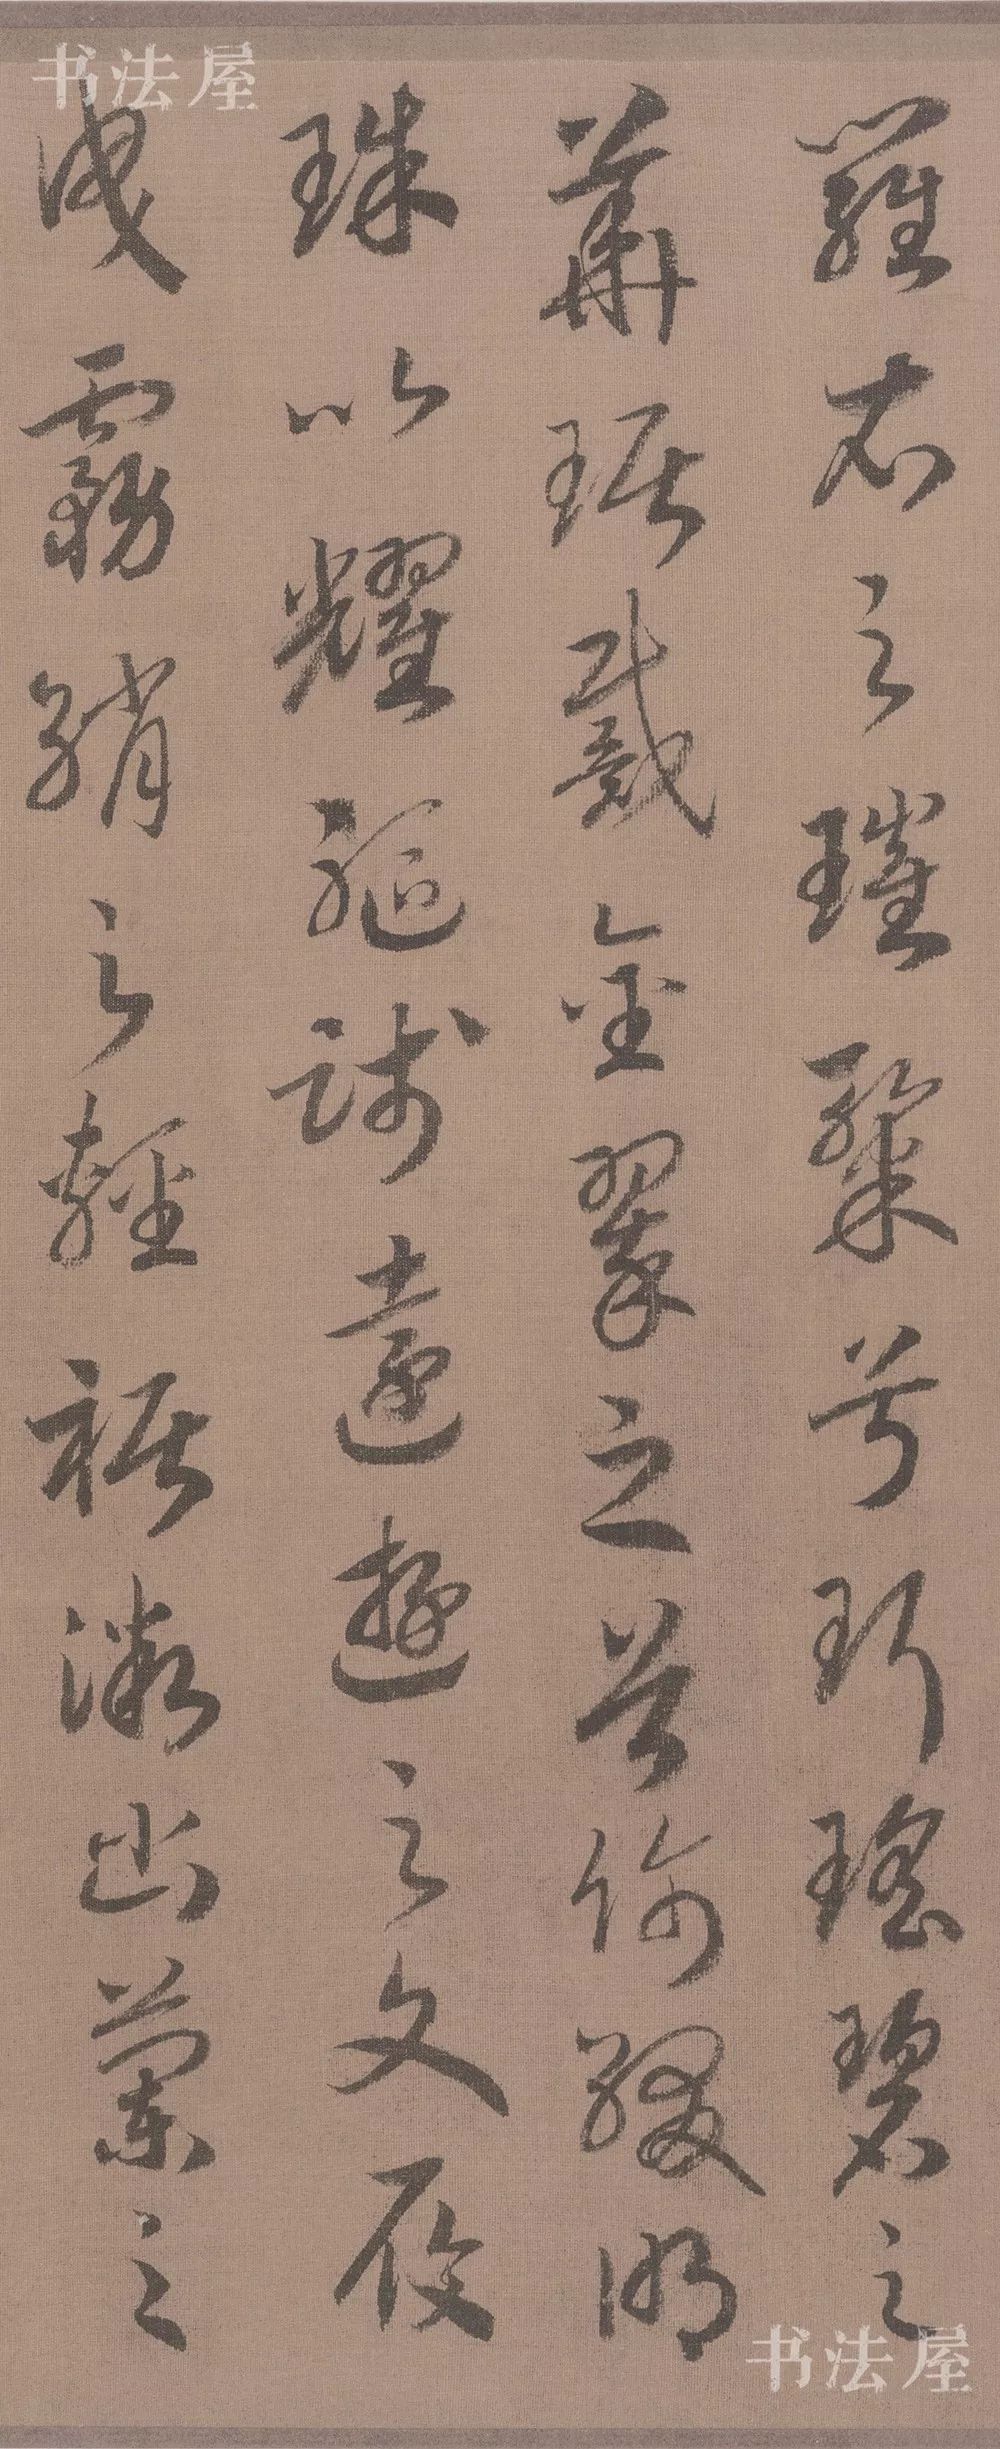 羅衣之璀粲兮珥瑤碧之
華琚戴金翠之首飾綴明
珠以耀軀踐遠遊之文履
曳霧綃之輕裾微幽蘭之
书法屋
书法屋